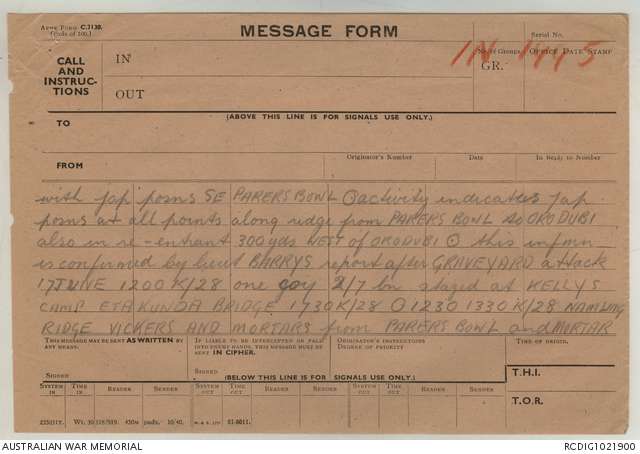 Army Form C.2128.
(Pads of 100.)
MESSAGE FORM
Serial No.
CALL
AND
INSTRUC-
TIONS
IN
OUT
No. of Groups
GR.
OFFICE DATE STAMP
IN 1775
(ABOVE THIS LINE IS FOR SIGNALS USE ONLY.)
TO
FROM
Originator's Number
Date
In Reply to Number
with Jap posns SE PARERS BOWL ⊙ activity indicates Jap
posns at all points along ridge from PARERS BOWL to ORODUBI
also in re-entrant 300 yds WEST of ORODUBI ⊙ this infmn
is confirmed by lieut BARRYS report after GRAVEYARD attack
17 JUNE 1200 K/28 one coy 2/7 bn staged at KELLYS
CAMP ETA KUNDA BRIDGE 1730 K/28 ⊙ 1230 1330 K/28 NAMLING
RIDGE VICKERS AND MORTARS from PARERS BOWL and MORTAR
THIS MESSAGE MAY BE SENT AS WRITTEN BY
ANY MEANS.
SIGNED
IF LIABLE TO BE INTERCEPTED OR FALL
INTO ENEMY HANDS, THIS MESSAGE MUST BE
SENT IN CIPHER.
SIGNED
ORIGINATOR'S INSTRUCTIONS
DEGREE OF PRIORITY
TIME OF ORIGIN.
(BELOW THIS LINE IS FOR SIGNALS USE ONLY.)
T.H.I.
T.O.R.
SYSTEM IN
TIME IN
READER
SENDER
SYSTEM OUT
TIME OUT
READER
SENDER
SYSTEM OUT
TIME OUT
READER
SENDER
pads. 10/41.
51-8011.
AUSTRALIAN WAR MEMORIAL
RCDIG1021900